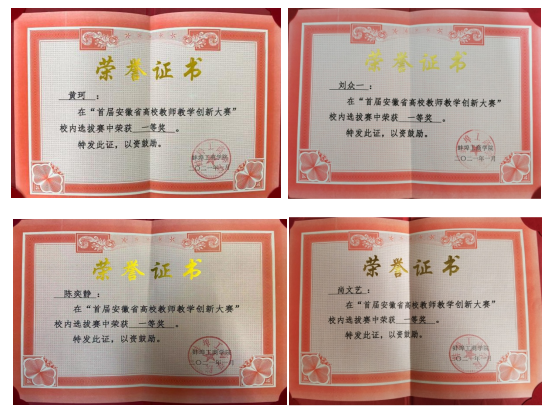 荣誉证书
黄珂：
在“首届安徽省高校教师教学创新大赛”
校内选拔赛中荣获 一等奖 。
特发此证，以资鼓励。
蚌埠工商学院
二〇二一年一月
荣誉证书
刘众一：
在“首届安徽省高校教师教学创新大赛”
校内选拔赛中荣获 一等奖 。
特发此证，以资鼓励。
蚌埠工商学院
二〇二一年一月
荣誉证书
陈奕静：
在“首届安徽省高校教师教学创新大赛”
校内选拔赛中荣获 一等奖 。
特发此证，以资鼓励。
蚌埠工商学院
二〇二一年一月
荣誉证书
闵文艺：
在“首届安徽省高校教师教学创新大赛”
校内选拔赛中荣获 一等奖 。
特发此证，以资鼓励。
蚌埠工商学院
二〇二一年一月